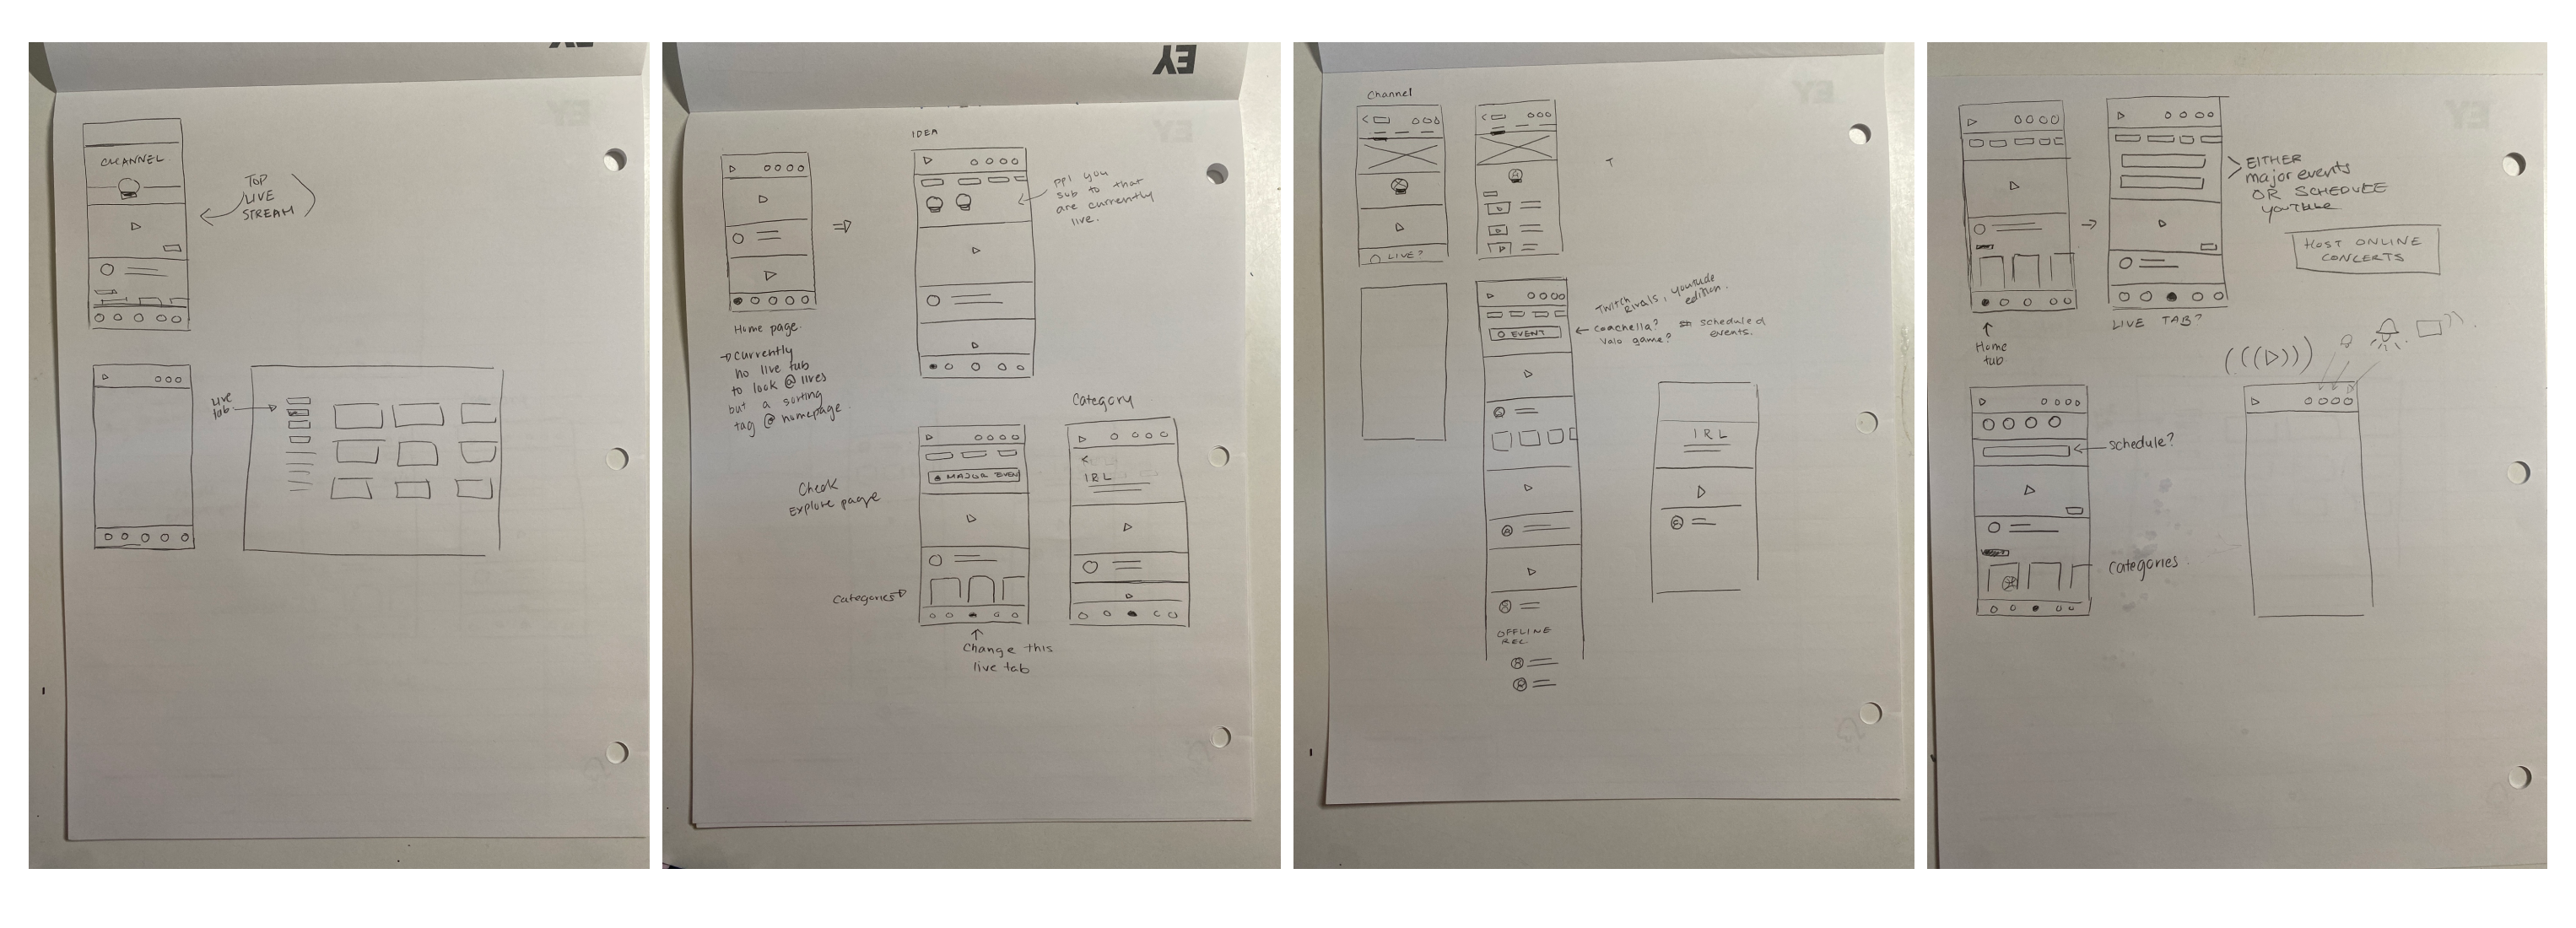 CHANNEL
TOP
LIVE
STREAM
Live
tab
EY
IDEA
ppl you
sub to that
are currently
live.
Home page.
→ Currently
no live tab
to look @ lives
but a sorting
tag @ homepage.
Check
Explore page
MAJOR EVEN
Categories
Change this
live tab
Category
IRL
Channel
LIVE?
T
EVENT
Twitch
Rivals, youtube
edition.
← Coachella?
Valo game?
scheduled
events.
OFFLINE
REC.
IRL
EITHER
major events
OR SCHEDULE
YOUTUBE
HOST ONLINE
CONCERTS
Home
tub
LIVE TAB?
schedule?
categories